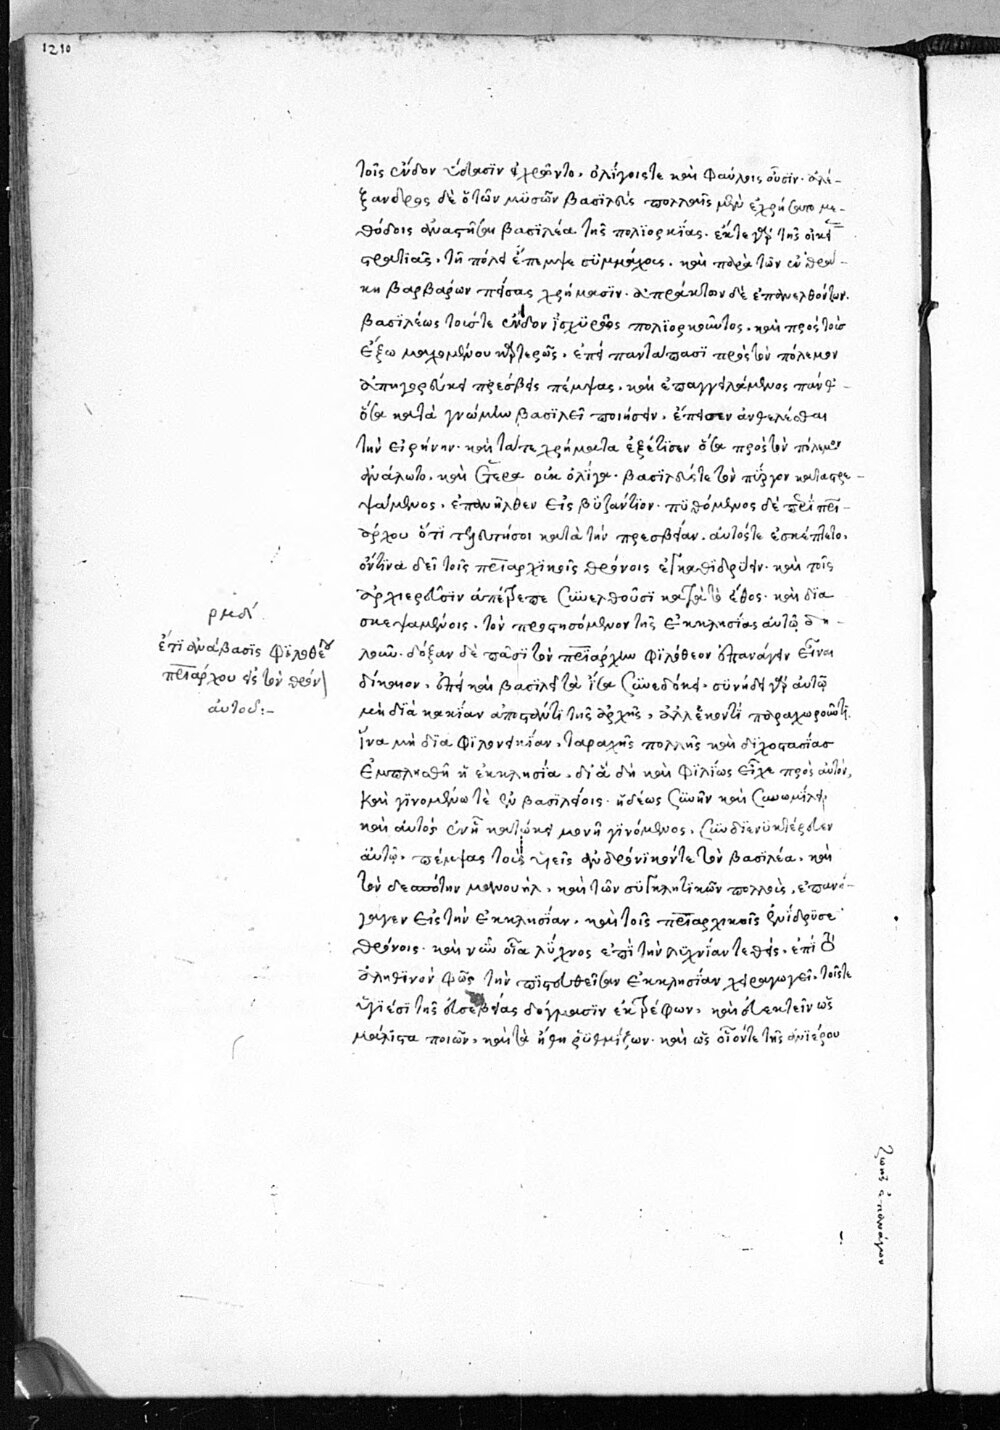 1210
τοῖς ἔνδον οὖσιν ἐχρῶντο, ὀλίγοις τε καὶ φαύλοις οὖσιν. ἀλέ-
ξανδρος δὲ ὁ τῶν μυσῶν βασιλεὺς πολλαῖς μὲν ἐχρήσατο με-
θόδοις ἀναστῆσαι βασιλέα τῆς πολιορκίας. ἔκ τε γὰρ τῆς οἰκεί
στρατιᾶς, τῇ πόλει ἔπεμψε συμμάχους. καὶ παρὰ τῶν ἐν θρά-
κῃ βαρβάρων πείσας χρήμασιν. ἀπράκτων δὲ ἐπανελθόντων.
βασιλέως τούς τε ἔνδον ἰσχυρῶς πολιορκοῦντος, καὶ πρὸς τοὺς
ἔξω μαχομένου καρτερῶς, ἐπεὶ πανταπασι πρὸς τὸν πόλεμον
ἀπηγορεύκει πρέσβεις πέμψας, καὶ ἐπαγγειλάμενος πάνθ'
ὅσα κατὰ γνώμην βασιλεῖ ποιήσειν, ἔπεισεν ἀνθελέσθαι
τὴν εἰρήνην. καὶ τά τε χρήματα ἐξέτισεν ὅσα πρὸς τὸν πόλεμον
ἀνάλωτο, καὶ ἕτερα οὐκ ὀλίγα. βασιλεύς τε τὸν πύργον καταστρε-
ψάμενος, ἐπανῆλθεν εἰς βυζάντιον. πυθόμενος δὲ περὶ πατρι-
άρχου ὅτι τελευτήσοι κατὰ τὴν πρεσβείαν. αὐτός τε ἐσκέπτετο,
ὅντινα δεῖ τοῖς πατριαρχικοῖς θρόνοις ἐγκαθιδρύειν. καὶ τοῖς
ἀρχιερεῦσιν ἐπέτρεπε συνελθοῦσι κατὰ τὸ ἔθος. καὶ δια
σκεψαμένοις. τὸν προστησόμενον τῆς ἐκκλησίας αὐτῷ δη-
λοῦν. δόξαν δὲ πᾶσι τὸν πατριάρχην φιλόθεον ἐπανάγειν εἶναι
δίκαιον, ἐπεὶ καὶ βασιλεῖ τὰ ἴσα συνεδόκει. συνῄδει γὰρ αὐτῷ
μὴ διὰ κακίαν ἀποστάντι τῆς ἀρχῆς, ἀλλ' ἑκοντὶ παραχωροῦντι.
ἵνα μὴ διὰ φιλονεικίαν, ταραχῆς πολλῆς καὶ διχοστασίας
ἐμπλησθῇ ἡ ἐκκλησία. δι' ἃ δὴ καὶ φιλίως εἶχε πρὸς αὐτόν,
καὶ γινομένῳ τὲ ἐν βασιλείοις. ἡδέως συνῆν καὶ συνωμίλει,
καὶ αὐτὸς ἐν ᾗ κατῴκει μονῇ γινόμενος, συνδιενυκτέρευεν
αὐτῷ. πέμψας τοὺς υἱεῖς ἀνδρόνικόν τε τὸν βασιλέα, καὶ
τὸν δεσπότην μανουήλ, καὶ τῶν συγκλητικῶν πολλοὺς, ἐπανή-
γαγεν εἰς τὴν ἐκκλησίαν, καὶ τοῖς πατριαρχικοῖς ἐνίδρυσε
θρόνοις. καὶ νῦν οἷα λύχνος ἐπὶ τὴν λυχνίαν τεθεὶς, ἐπὶ τὸ
ἀληθινὸν φῶς τὴν πιστευθεῖσαν ἐκκλησίαν χειραγωγεῖ, τοῖς τε
ὑγιέσι τῆς εὐσεβείας δόγμασιν ἐκτρέφων, καὶ εὐεκτεῖν ὡς
μάλιστα ποιῶν, καὶ τὰ ἤθη ῥυθμίζων. καὶ ὡς οἷόν τε τῆς ἀνιέρου
ρμδ΄
ἔτι ἀνάβασις φιλοθέου
πατριάρχου εἰς τὸν θρόν
αὐτοῦ:-
ζωῆς ἀπανάγων